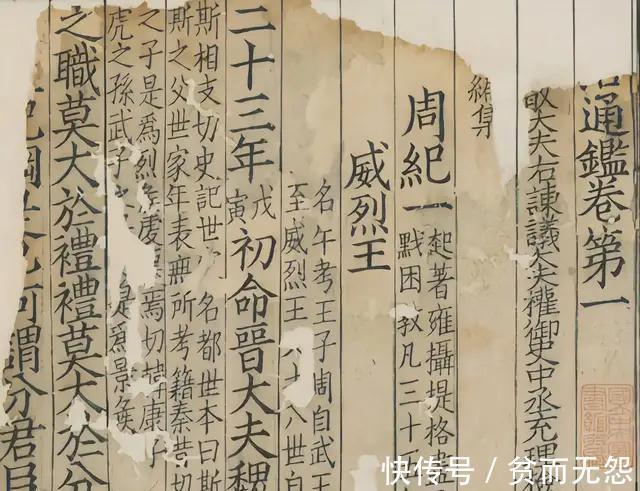 通鑑卷第一
大夫右諫議大夫權御史中丞充理
周紀一
起著雍攝提格
黓困敦凡三十
威烈王
名午考王子周自武王
至威烈王 八十八世自
二十三年 戊寅 初命晉大夫魏
斯相支切史記世 名都世本曰斯
斯之父世家年表無所考籍秦昔切
之子是爲烈矦虔 焉切韓康子
虎之孫武子 是爲景矦
之職莫大於禮禮莫大於分
綱 何謂分君臣
快传号 / 贫而无怨